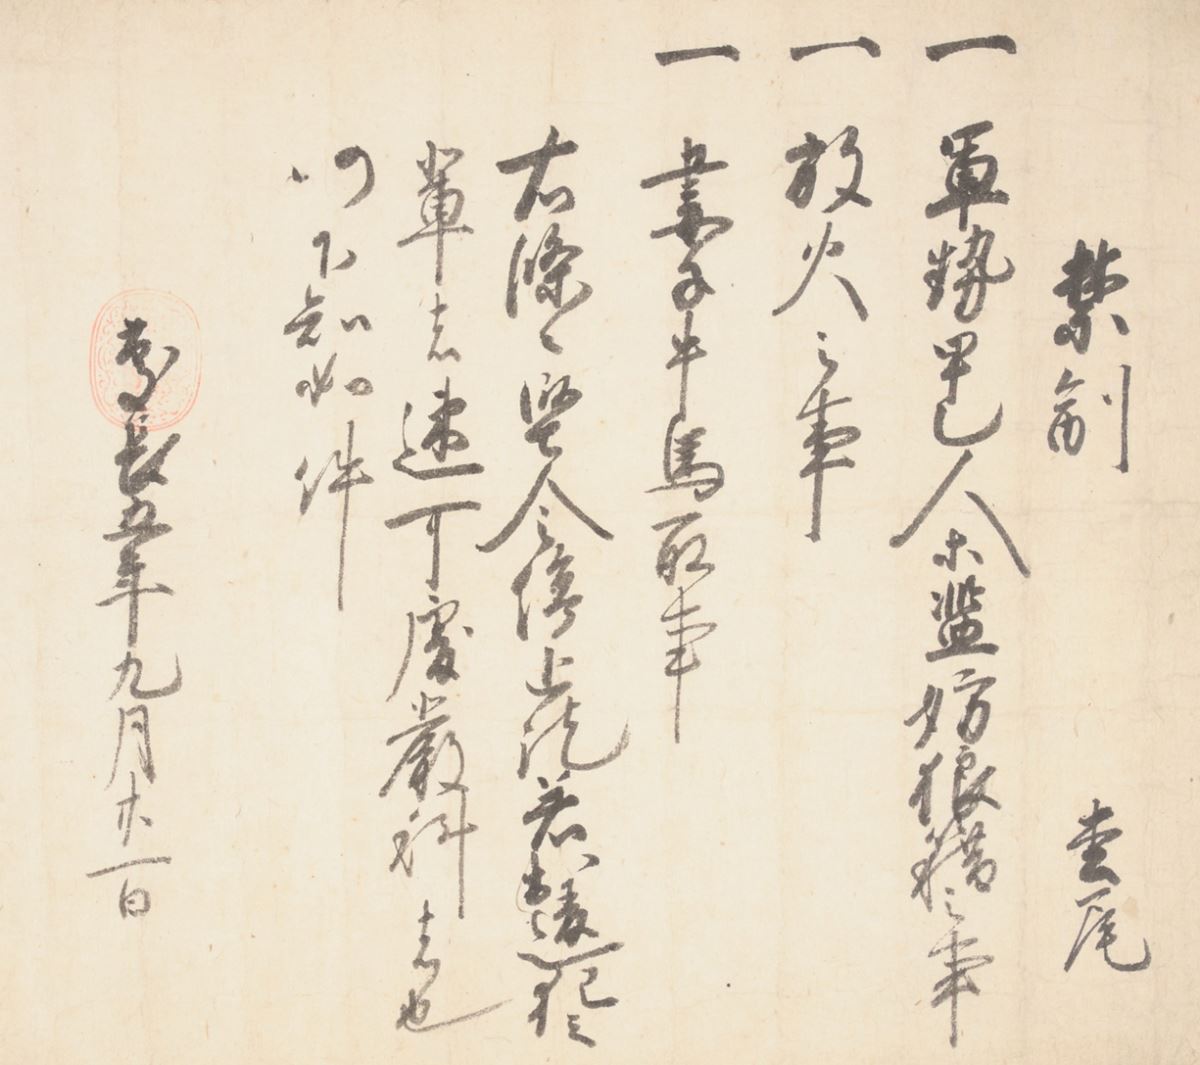 禁制
一 軍勢甲乙人等濫妨狼藉之事
一 放火之事
一 妻子牛馬取事
右條々堅令停止訖若於違犯之
輩者速可處嚴科者也
仍下知如件
慶長五年九月廿一日